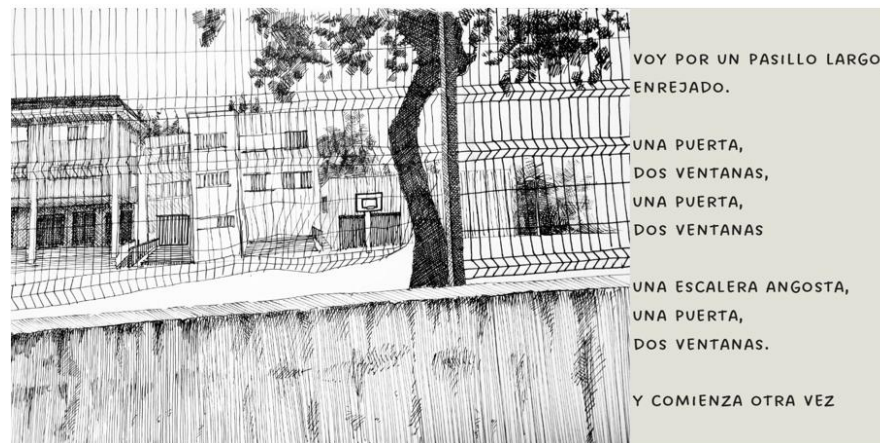 VOY POR UN PASILLO LARGO
ENREJADO.
UNA PUERTA,
DOS VENTANAS,
UNA PUERTA,
DOS VENTANAS
UNA ESCALERA ANGOSTA,
UNA PUERTA,
DOS VENTANAS.
Y COMIENZA OTRA VEZ